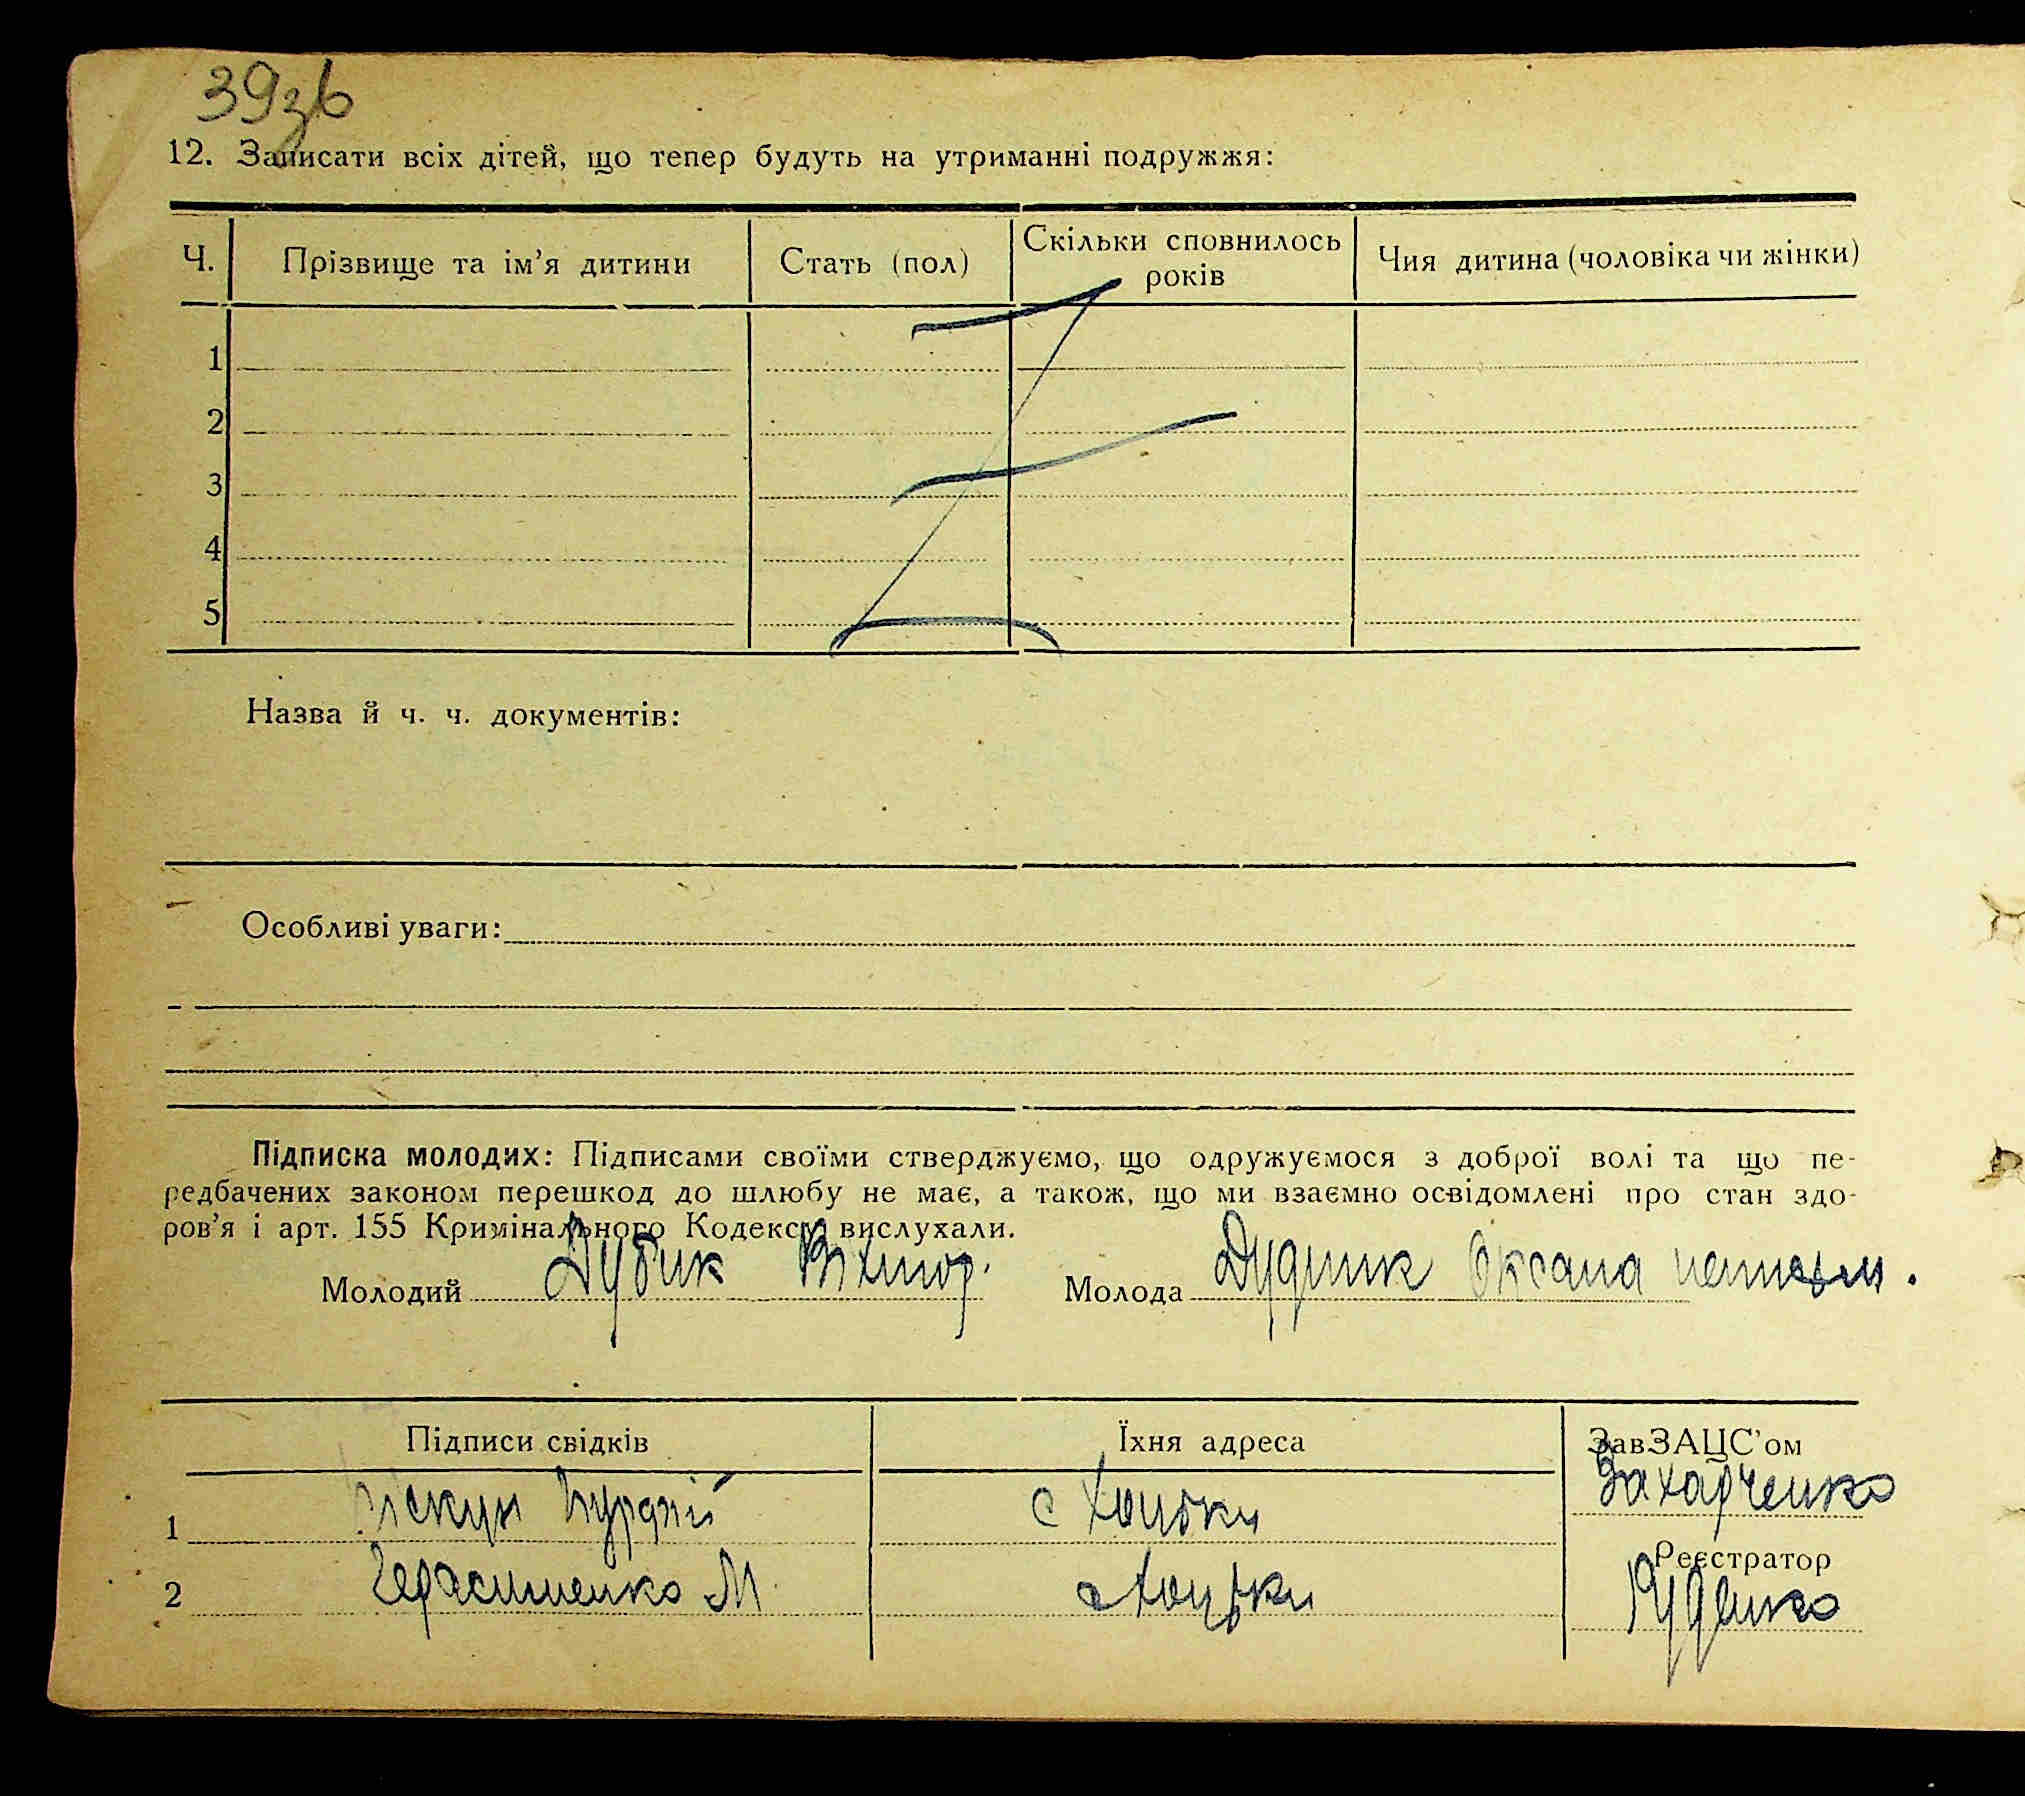 39зв
12. Записати всіх дітей, що тепер будуть на утриманні подружжя:
Ч. Прізвище та ім’я дитини Стать (пол) Скільки сповнилось років Чия дитина (чоловіка чи жінки)
1
2
3
4
5
Назва й ч. ч. документів:
Особливі уваги:
Підписка молодих: Підписами своїми стверджуємо, що одружуємося з доброї волі та що пе-
редбачених законом перешкод до шлюбу не має, а також, що ми взаємно освідомлені про стан здо-
ров’я і арт. 155 Кримінального Кодексу вислухали.
Молодий Дубик Віктор. Молода Дудник Оксана
Підписи свідків Їхня адреса ЗавЗАЦС’ом
Захарченко
1 Піскун с Хоцьки
Реєстратор
2 Герасименко М с Хоцьки Руденко